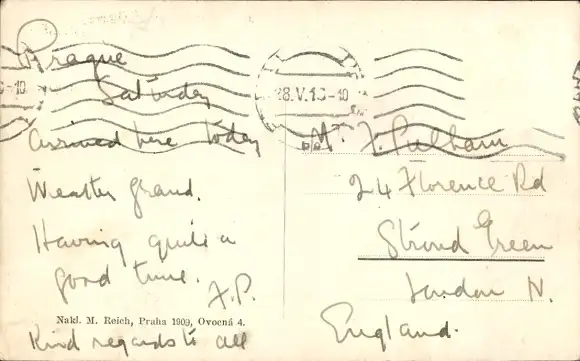 Prague
Saturday
Arrived here today
Weather grand.
Having quite a
good time.
F.P.
Nakl. M. Reich, Praha 1909, Ovocná 4.
Kind regards to all
28.V.10-10
Mr. F. Pulham
24 Florence Rd
Stroud Green
London N.
England.